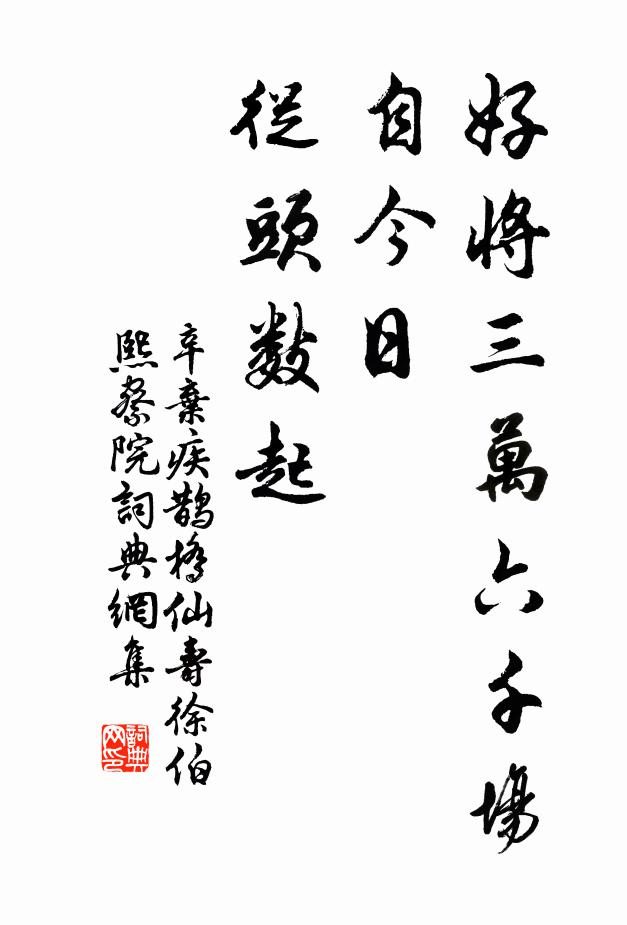 好將三萬六千場
自今日
從頭數起
辛棄疾鵲橋仙壽徐伯
熙察院詞典網集
詞典
网印